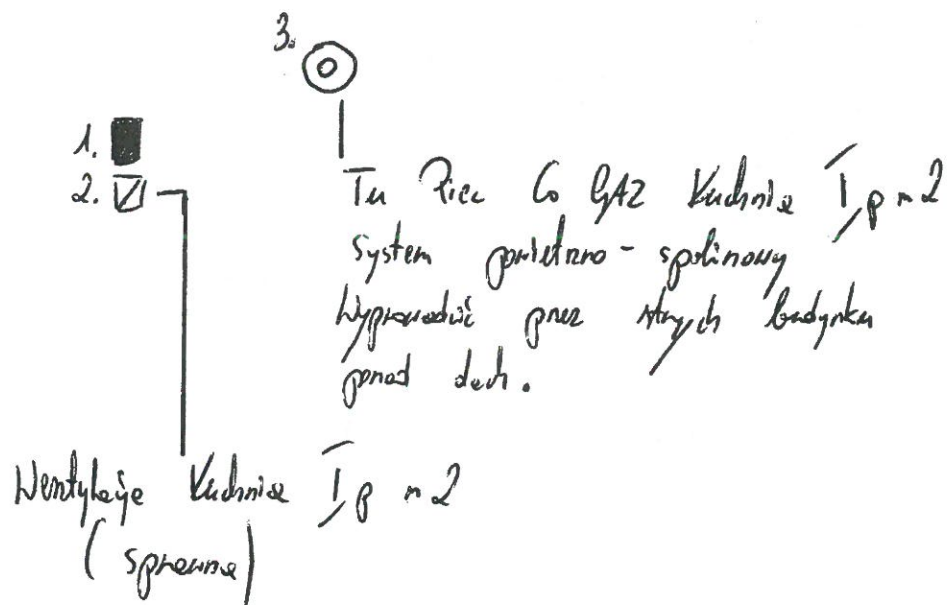 3.
1.
2.
Tu Piec Co GAZ Kuchnia I p m 2
System powietrzno-spalinowy
Wyprowadzić przez strych budynku
ponad dach.
Wentylacja Kuchnia I p m 2
(sprawna)